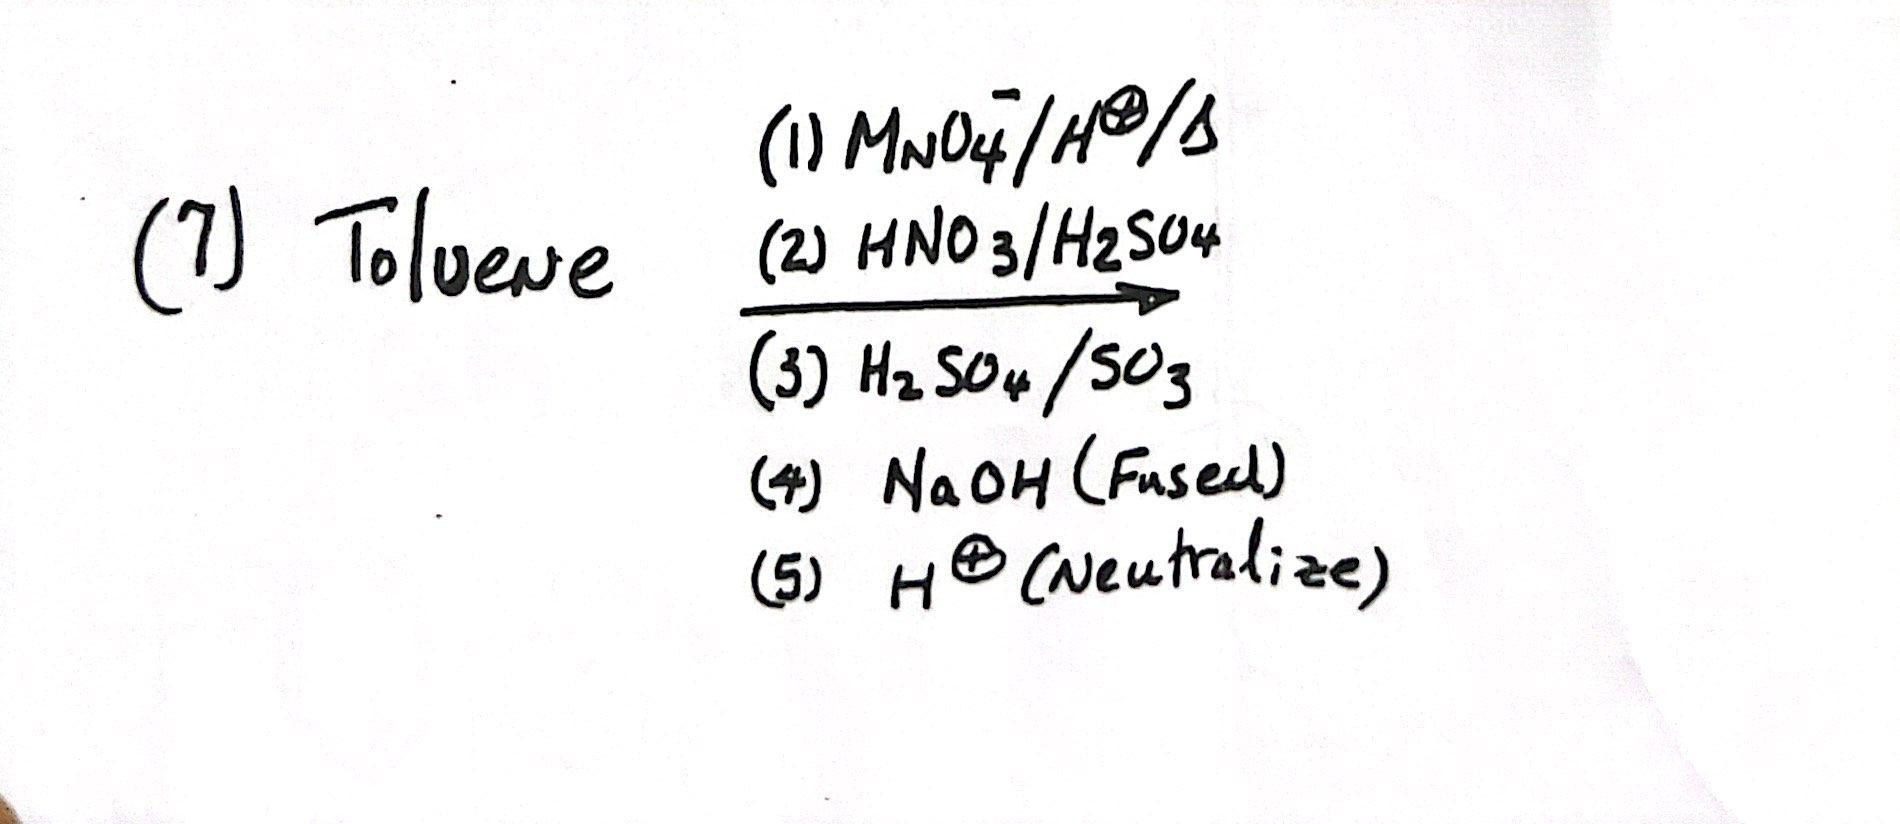 (7) Toluene
(1) MnO4⁻/H⊕/Δ
(2) HNO3/H2SO4
(3) H2SO4/SO3
(4) NaOH (Fused)
(5) H⊕ (Neutralize)